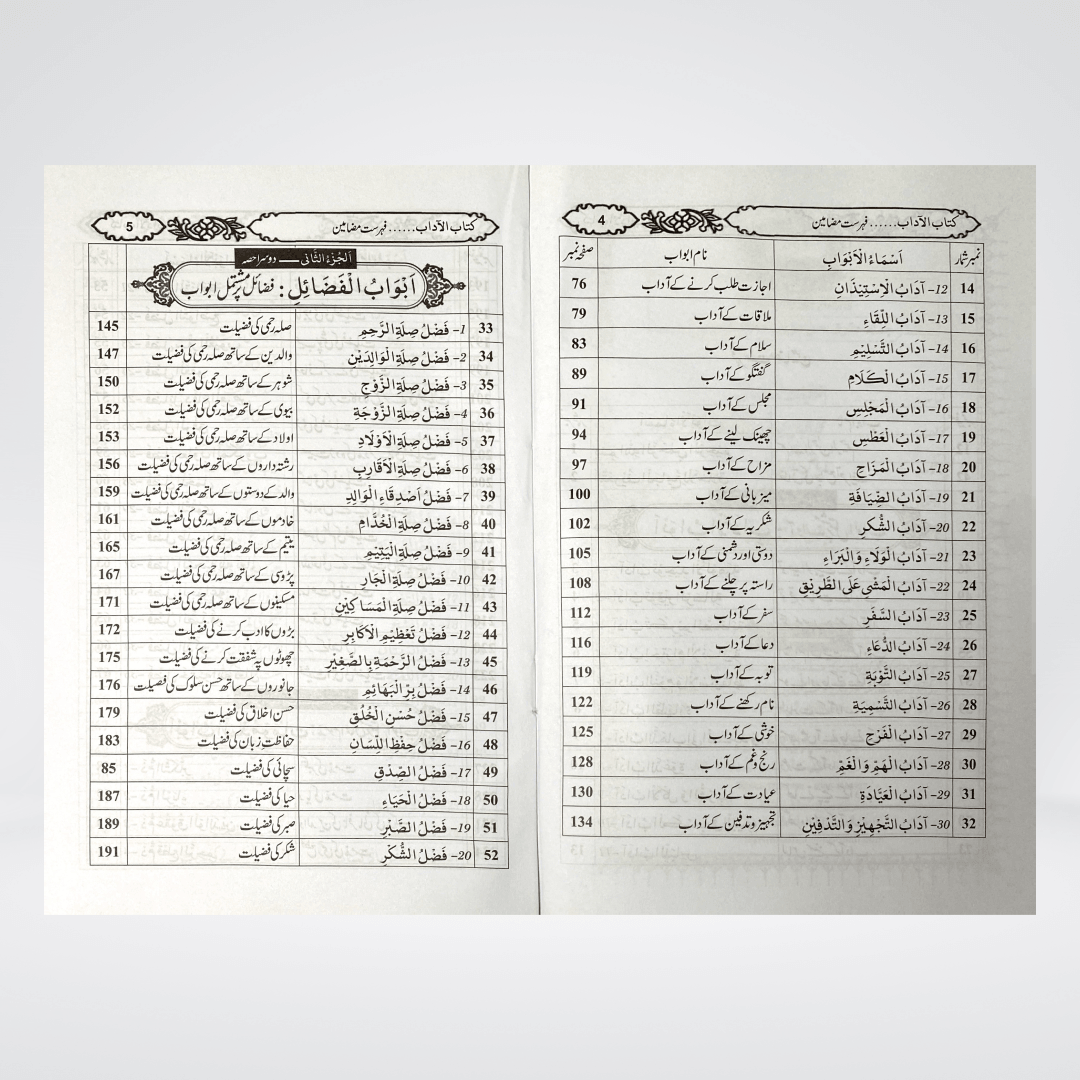 کتاب الآداب...... فہرست مضامین 4
نمبر شمار اَسْمَاءُ الْاَبْوَابِ نام ابواب صفحہ نمبر
14 12- آدَابُ الْاِسْتِیْذَانِ اجازت طلب کرنے کے آداب 76
15 13- آدَابُ اللِّقَاءِ ملاقات کے آداب 79
16 14- آدَابُ التَّسْلِیْمِ سلام کے آداب 83
17 15- آدَابُ الْکَلَامِ گفتگو کے آداب 89
18 16- آدَابُ الْمَجْلِسِ مجلس کے آداب 91
19 17- آدَابُ الْعَطْسِ چھینک لینے کے آداب 94
20 18- آدَابُ الْمَزَاحِ مزاح کے آداب 97
21 19- آدَابُ الضِّیَافَةِ میزبانی کے آداب 100
22 20- آدَابُ الشُّکْرِ شکریہ کے آداب 102
23 21- آدَابُ الْوَلَاءِ وَالْبَرَاءِ دوستی اور دشمنی کے آداب 105
24 22- آدَابُ الْمَشْیِ عَلَی الطَّرِیْقِ راستہ پر چلنے کے آداب 108
25 23- آدَابُ السَّفَرِ سفر کے آداب 112
26 24- آدَابُ الدُّعَاءِ دعا کے آداب 116
27 25- آدَابُ التَّوْبَةِ توبہ کے آداب 119
28 26- آدَابُ التَّسْمِیَةِ نام رکھنے کے آداب 122
29 27- آدَابُ الْفَرَحِ خوشی کے آداب 125
30 28- آدَابُ الْھَمِّ وَالْغَمِّ رنج و غم کے آداب 128
31 29- آدَابُ الْعِیَادَةِ عیادت کے آداب 130
32 30- آدَابُ التَّجْھِیْزِ وَالتَّدْفِیْنِ تجہیز و تدفین کے آداب 134
کتاب الآداب...... فہرست مضامین 5
اَلْجُزْءُ الثَّانِی — دوسرا حصہ
اَبْوَابُ الْفَضَائِلِ: فضائل پر مشتمل ابواب
33 1- فَضْلُ صِلَةِ الرَّحِمِ صلہ رحمی کی فضیلت 145
34 2- فَضْلُ صِلَةِ الْوَالِدَیْنِ والدین کے ساتھ صلہ رحمی کی فضیلت 147
35 3- فَضْلُ صِلَةِ الزَّوْجِ شوہر کے ساتھ صلہ رحمی کی فضیلت 150
36 4- فَضْلُ صِلَةِ الزَّوْجَةِ بیوی کے ساتھ صلہ رحمی کی فضیلت 152
37 5- فَضْلُ صِلَةِ الْاَوْلَادِ اولاد کے ساتھ صلہ رحمی کی فضیلت 153
38 6- فَضْلُ صِلَةِ الْاَقَارِبِ رشتہ داروں کے ساتھ صلہ رحمی کی فضیلت 156
39 7- فَضْلُ اَصْدِقَاءِ الْوَالِدِ والد کے دوستوں کے ساتھ صلہ رحمی کی فضیلت 159
40 8- فَضْلُ صِلَةِ الْخُدَّامِ خادموں کے ساتھ صلہ رحمی کی فضیلت 161
41 9- فَضْلُ صِلَةِ الْیَتِیْمِ یتیم کے ساتھ صلہ رحمی کی فضیلت 165
42 10- فَضْلُ صِلَةِ الْجَارِ پڑوسی کے ساتھ صلہ رحمی کی فضیلت 167
43 11- فَضْلُ صِلَةِ الْمَسَاکِیْنِ مسکینوں کے ساتھ صلہ رحمی کی فضیلت 171
44 12- فَضْلُ تَعْظِیْمِ الْاَکَابِرِ بڑوں کا ادب کرنے کی فضیلت 172
45 13- فَضْلُ الرَّحْمَةِ بِالصَّغِیْرِ چھوٹوں پہ شفقت کرنے کی فضیلت 175
46 14- فَضْلُ بِرِّ الْبَهَائِمِ جانوروں کے ساتھ حسن سلوک کی فضیلت 176
47 15- فَضْلُ حُسْنِ الْخُلُقِ حسن اخلاق کی فضیلت 179
48 16- فَضْلُ حِفْظِ اللِّسَانِ حفاظتِ زبان کی فضیلت 183
49 17- فَضْلُ الصِّدْقِ سچائی کی فضیلت 85
50 18- فَضْلُ الْحَیَاءِ حیا کی فضیلت 187
51 19- فَضْلُ الصَّبْرِ صبر کی فضیلت 189
52 20- فَضْلُ الشُّکْرِ شکر کی فضیلت 191